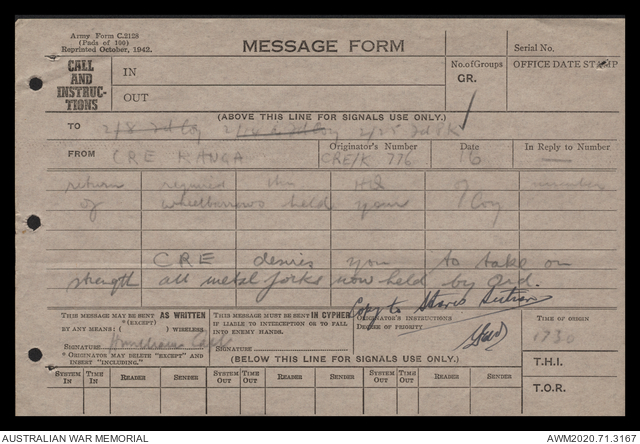 Army Form C.2128
(Pads of 100)
Reprinted October, 1942.
MESSAGE FORM
Serial No.
CALL AND INSTRUC-TIONS
IN
OUT
No. of Groups
GR.
OFFICE DATE STAMP
(ABOVE THIS LINE FOR SIGNALS USE ONLY.)
TO 2/8 Fd Coy 2/14 Fd Coy 2/25 Fd Pk
FROM CRE KANGA
Originator's Number
CRE/K 776
Date
16
In Reply to Number
—
return required this HQ of number
of wheelbarrows held your Coy
CRE desires you to take on
strength all metal forks now held by Ord.
Copy to Stores
THIS MESSAGE MAY BE SENT AS WRITTEN
*(EXCEPT)
BY ANY MEANS: ( ) WIRELESS.
SIGNATURE
* ORIGINATOR MAY DELETE "EXCEPT" AND INSERT "INCLUDING."
THIS MESSAGE MUST BE SENT IN CYPHER
IF LIABLE TO INTERCEPTION OR TO FALL INTO ENEMY HANDS.
SIGNATURE
ORIGINATOR'S INSTRUCTIONS
DEGREE OF PRIORITY
TIME OF ORIGIN
1730
T.H.I.
T.O.R.
(BELOW THIS LINE FOR SIGNALS USE ONLY.)
SYSTEM IN TIME IN READER SENDER SYSTEM OUT TIME OUT READER SENDER SYSTEM OUT TIME OUT READER SENDER
AUSTRALIAN WAR MEMORIAL
AWM2020.71.3167